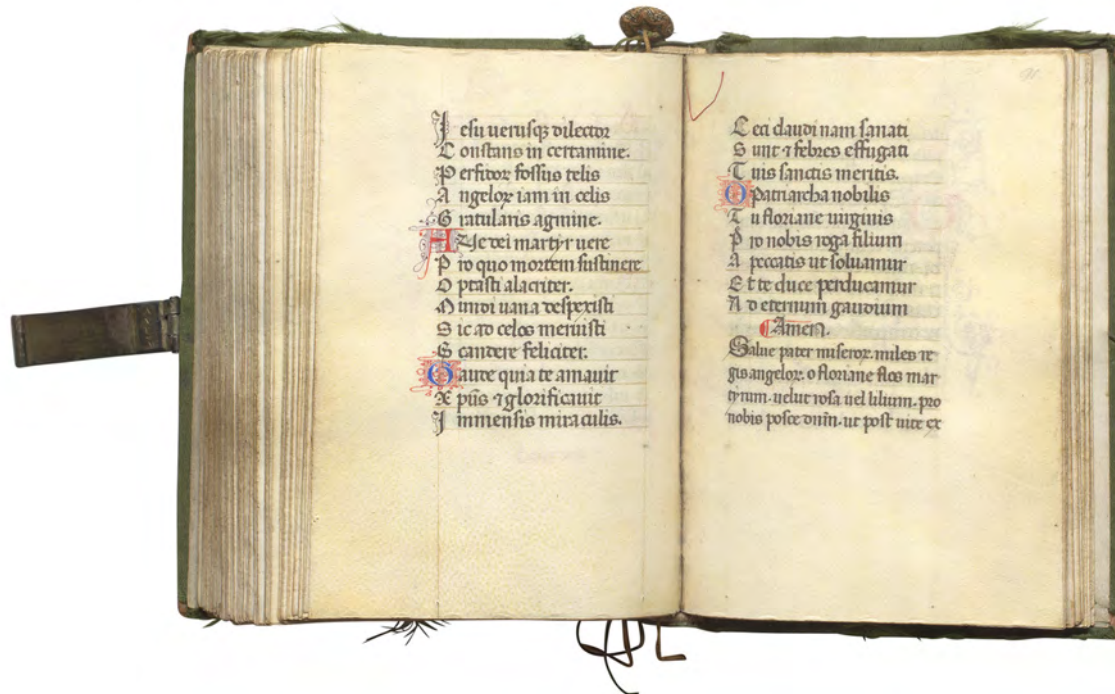 Jesu uerusqꝫ dilector
Constans in certamine.
Perfitoꝝ fossus telis
Angeloꝝ iam in celis
Gratularis agmine.
AUe dei martyr uere
Pro quo mortem sustinere
Optasti alacriter.
Mundi uana despexisti
Sic ad celos meruisti
Scandere feliciter.
Gaude quia te amauit
Xpūs ⁊ glorificauit
Immensis miraculis.
Ceci claudi nam sanati
Sunt ⁊ febres effugati
Tuis sanctis meritis.
O Patriarcha nobilis
Tu floriane uirginis
Pro nobis roga filium
A peccatis ut soluamur
Et te duce perducamur
Ad eternum gaudium
Amen.
Salue pater miseroꝝ. miles re
gis angeloꝝ. o floriane flos mar
tyrum. uelut rosa uel lilium. pro
nobis posce dnm̄. ut post uite ex